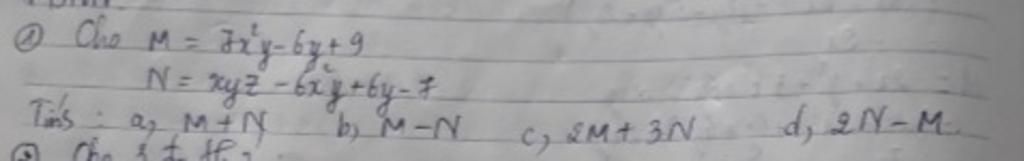 ① Cho M = 7x²y - 6y + 9
N = xyz - 6x²y + 6y - 7
Tính : a, M + N b, M - N c, 2M + 3N d, 2N - M
② Cho